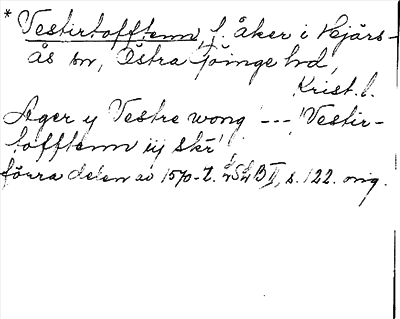 * Vestirtofftenn, f. åker i Hjärs-
ås sn, Östra Göinge hd,
Krist. l.
Ager y Vestre wong --- Vestir-
tofftenn iij skr
förra delen av 1570-t. B II, s. 122. orig.